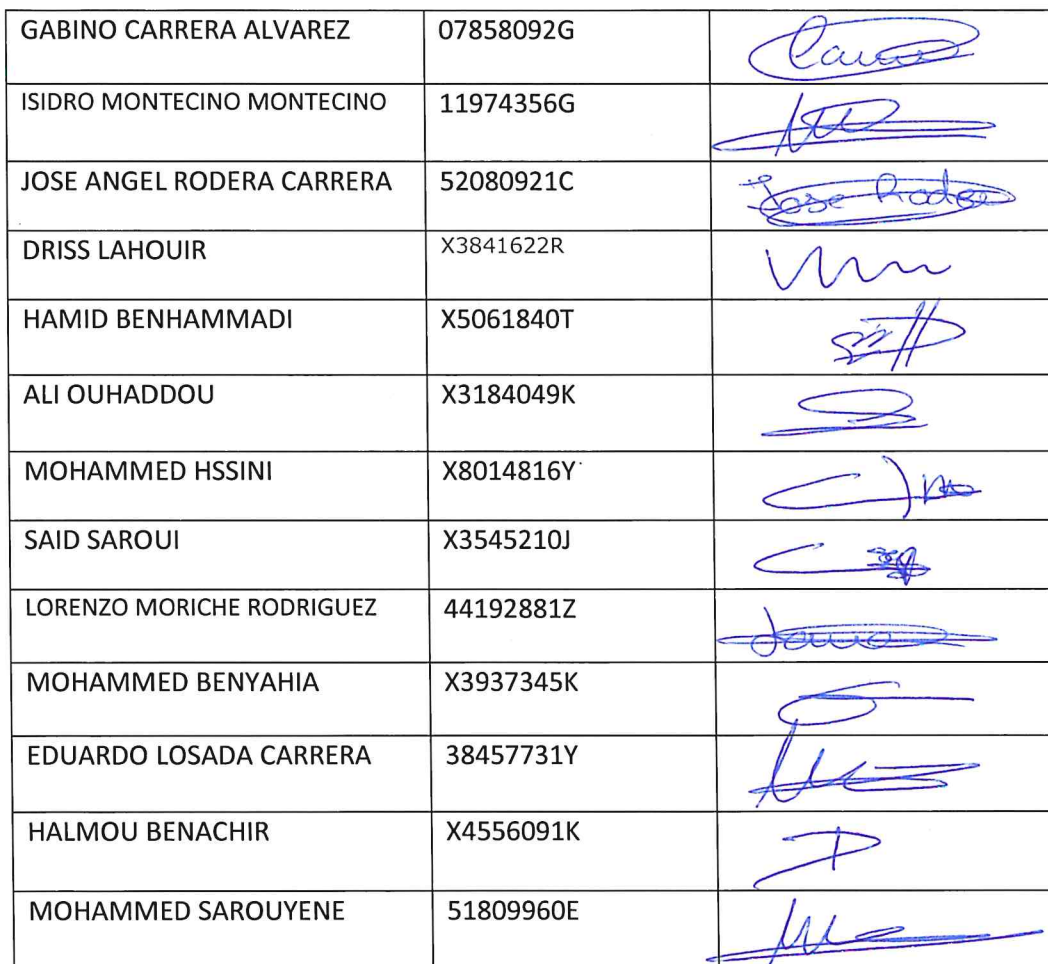 GABINO CARRERA ALVAREZ 07858092G
ISIDRO MONTECINO MONTECINO 11974356G
JOSE ANGEL RODERA CARRERA 52080921C Jose Rodera
DRISS LAHOUIR X3841622R
HAMID BENHAMMADI X5061840T
ALI OUHADDOU X3184049K
MOHAMMED HSSINI X8014816Y
SAID SAROUI X3545210J
LORENZO MORICHE RODRIGUEZ 44192881Z
MOHAMMED BENYAHIA X3937345K
EDUARDO LOSADA CARRERA 38457731Y
HALMOU BENACHIR X4556091K
MOHAMMED SAROUYENE 51809960E